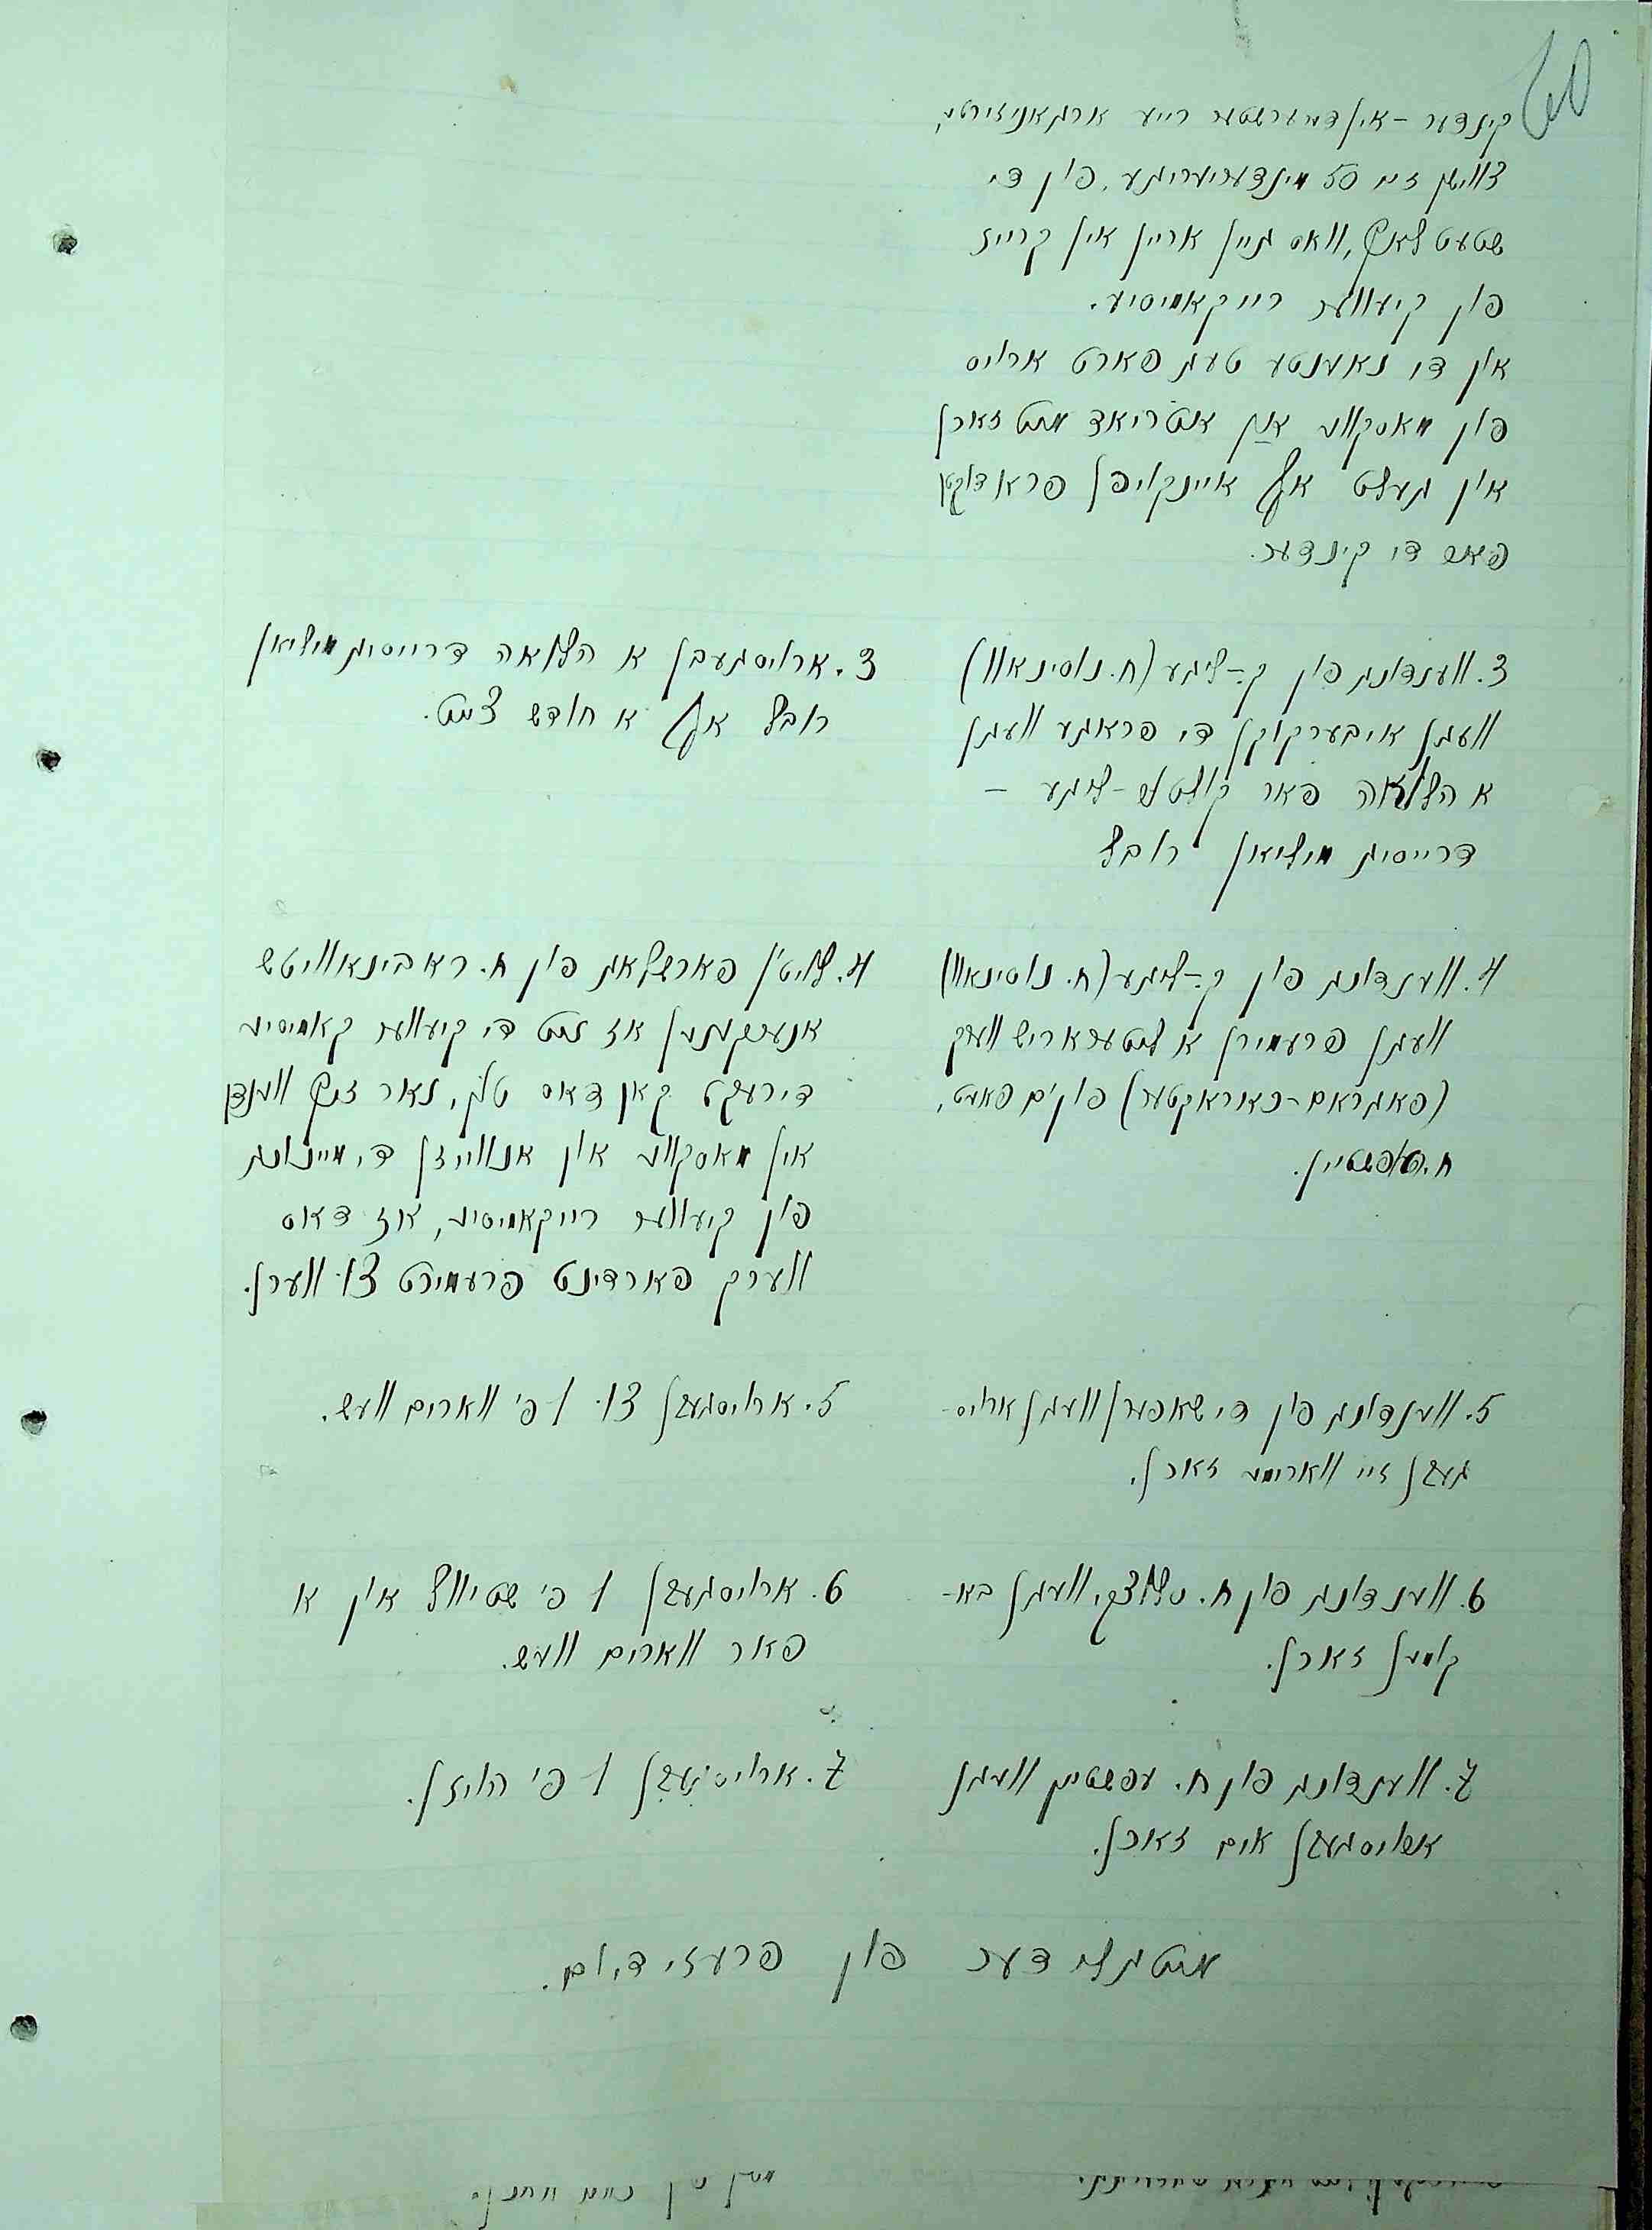 60
קינדער – אין דער ערשטער רייע ארגאניזירטע,
צווישן זיי 50 מינדעריעריגע, פון די
שטעטלאך, וואס גייען אריין אין קרייז
פון קיעווער רייקאמיסיע.
אין די נאענטע טעג פארט ארויס
פון מאסקווע אן אטריאד מיט זאכן
און געלט אויף איינקויפן פראדוקטן
פאר די קינדער.
3. ווענדונג פון ק.-ליגע (ח. נוסינאוו)
וועגן איבערקוקן די פראגע וועגן
א הלוואה פאר קולטור-ליגע –
דרייסיג מיליאן רובל
3. ארויסגעבן א הלוואה דרייסיג מיליאן
רובל אויף א חודש צייט.
4. ווענדונג פון ק.-ליגע (ח. נוסינאוו)
וועגן פרעמירן א ליטעראריש ווערק
(פאגראם-כאראקטער) פונ'ם פאעט,
ח.
4. לויט'ן פארשלאג פון ח. ראבינאוויטש
אנערקענען אז ניט די קיעווער קאמיסיע
דירעקט קאן דאס טון, נאר זיך ווענדן
אין מאסקווע און אנווייזן די מיינונג
פון קיעווער רייקאמיסיע, אז דאס
ווערק פארדינט פרעמירט צו ווערן.
5. ווענדונג פון די שאפערן וועגן ארויס-
געבן זיי ווארימע זאכן.
5. ארויסגעבן צו 1 פ' ווארים וועש.
6. ווענדונג פון ח. סלוצקי, וועגן בא-
קומען זאכן.
6. ארויסגעבן 1 פ' שטיוול און א
פאר ווארים וועש.
7. ווענדונג פון ח. עפשטיין וועגן
ארויסגעבן אים זאכן.
7. ארויסגעבן 1 פ' הויזן.
מיטגלידער פון פרעזידיום.